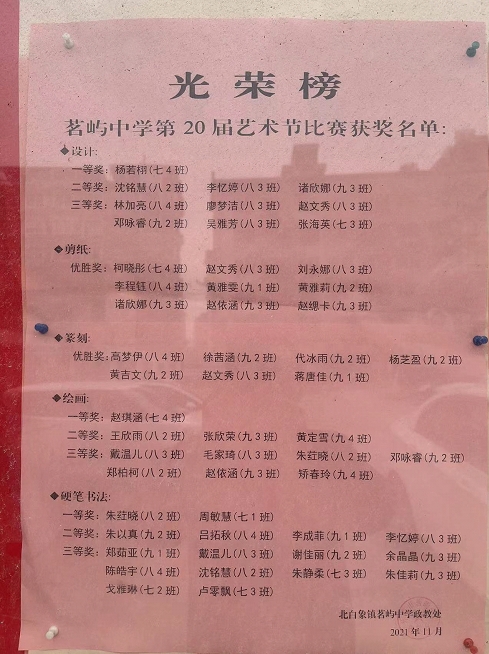 光荣榜
茗屿中学第20届艺术节比赛获奖名单:
◆设计:
一等奖: 杨若栩(七4班)
二等奖: 沈铭慧(八2班) 李忆婷(八3班) 诸欣娜(九3班)
三等奖: 林加亮(八4班) 廖梦洁(八3班) 赵文秀(八3班)
邓咏睿(九2班) 吴雅芳(八3班) 张海英(七3班)
◆剪纸:
优胜奖: 柯晓彤(七4班) 赵文秀(八3班) 刘永娜(八3班)
李程钰(八4班) 黄雅雯(九1班) 黄雅莉(九2班)
诸欣娜(九3班) 赵依涵(九3班) 赵缌卡(九3班)
◆篆刻:
优胜奖: 高梦伊(八4班) 徐茜涵(九2班) 代冰雨(九2班) 杨芝盈(九2班)
黄吉文(九2班) 赵文秀(八3班) 蒋唐佳(九1班)
◆绘画:
一等奖: 赵琪涵(七4班)
二等奖: 王欣雨(八2班) 张欣荣(九3班) 黄定雪(九4班)
三等奖: 戴温儿(八3班) 毛家琦(八3班) 朱荭晓(八2班) 邓咏睿(九2班)
郑柏柯(八2班) 赵依涵(九3班) 矫春玲(九4班)
◆硬笔书法:
一等奖: 朱荭晓(八2班) 周敏慧(七1班)
二等奖: 朱以真(九2班) 吕拓秋(八4班) 李成菲(九1班) 李忆婷(八3班)
三等奖: 郑茹亚(九1班) 戴温儿(八3班) 谢佳丽(九2班) 余晶晶(九3班)
陈皓宇(八4班) 沈铭慧(八2班) 朱静柔(七3班) 朱佳莉(九3班)
戈雅琳(七2班) 卢零飘(七3班)
北白象镇茗屿中学政教处
2021年11月